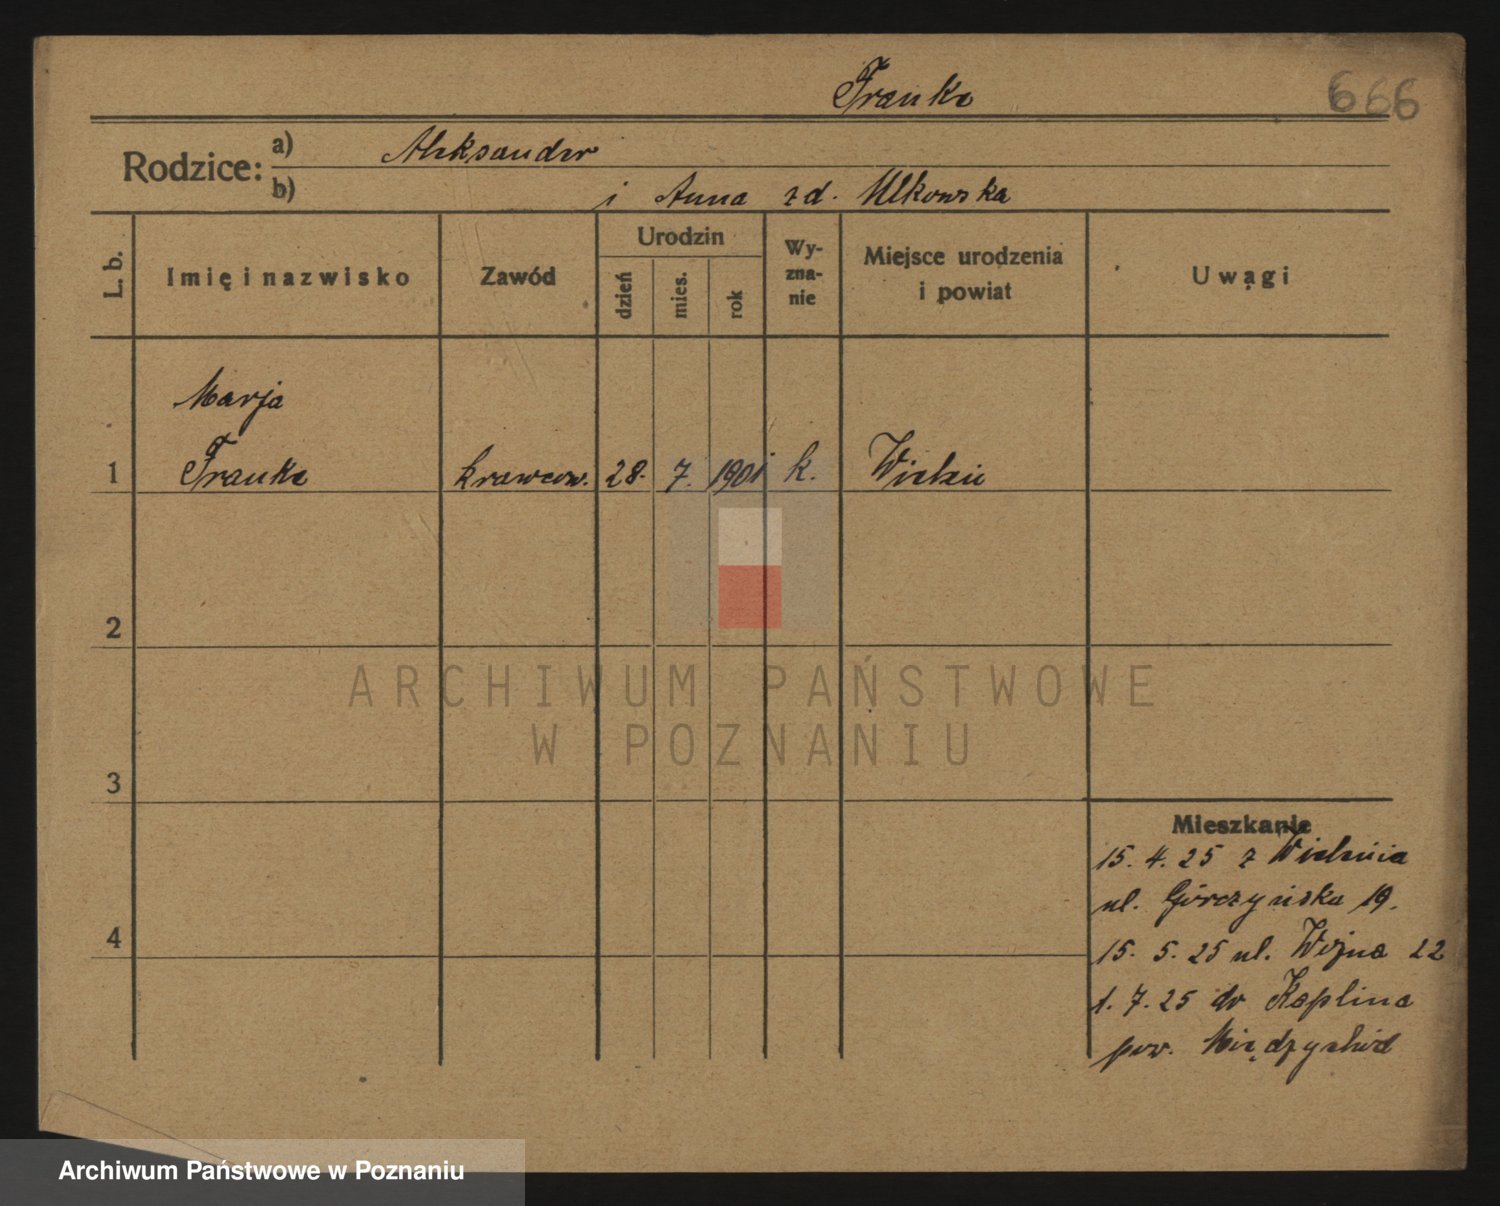 Franke
666
Rodzice:
a) Aleksander
b) i Anna zd.
L. b.
Imię i nazwisko
Zawód
Urodzin
dzień
mies.
rok
Wy-
zna-
nie
Miejsce urodzenia
i powiat
Uwagi
Marja
1 Franke krawcow. 28. 7. 1901 k. Wieleń
2
3
4
Mieszkanie
15. 4. 25 z Wielenia
ul. Górczyńska 19.
15. 5. 25 ul. 22
1. 7. 25 do Kaplina
pow. Międzychód
ARCHIWUM PAŃSTWOWE
W POZNANIU
Archiwum Państwowe w Poznaniu